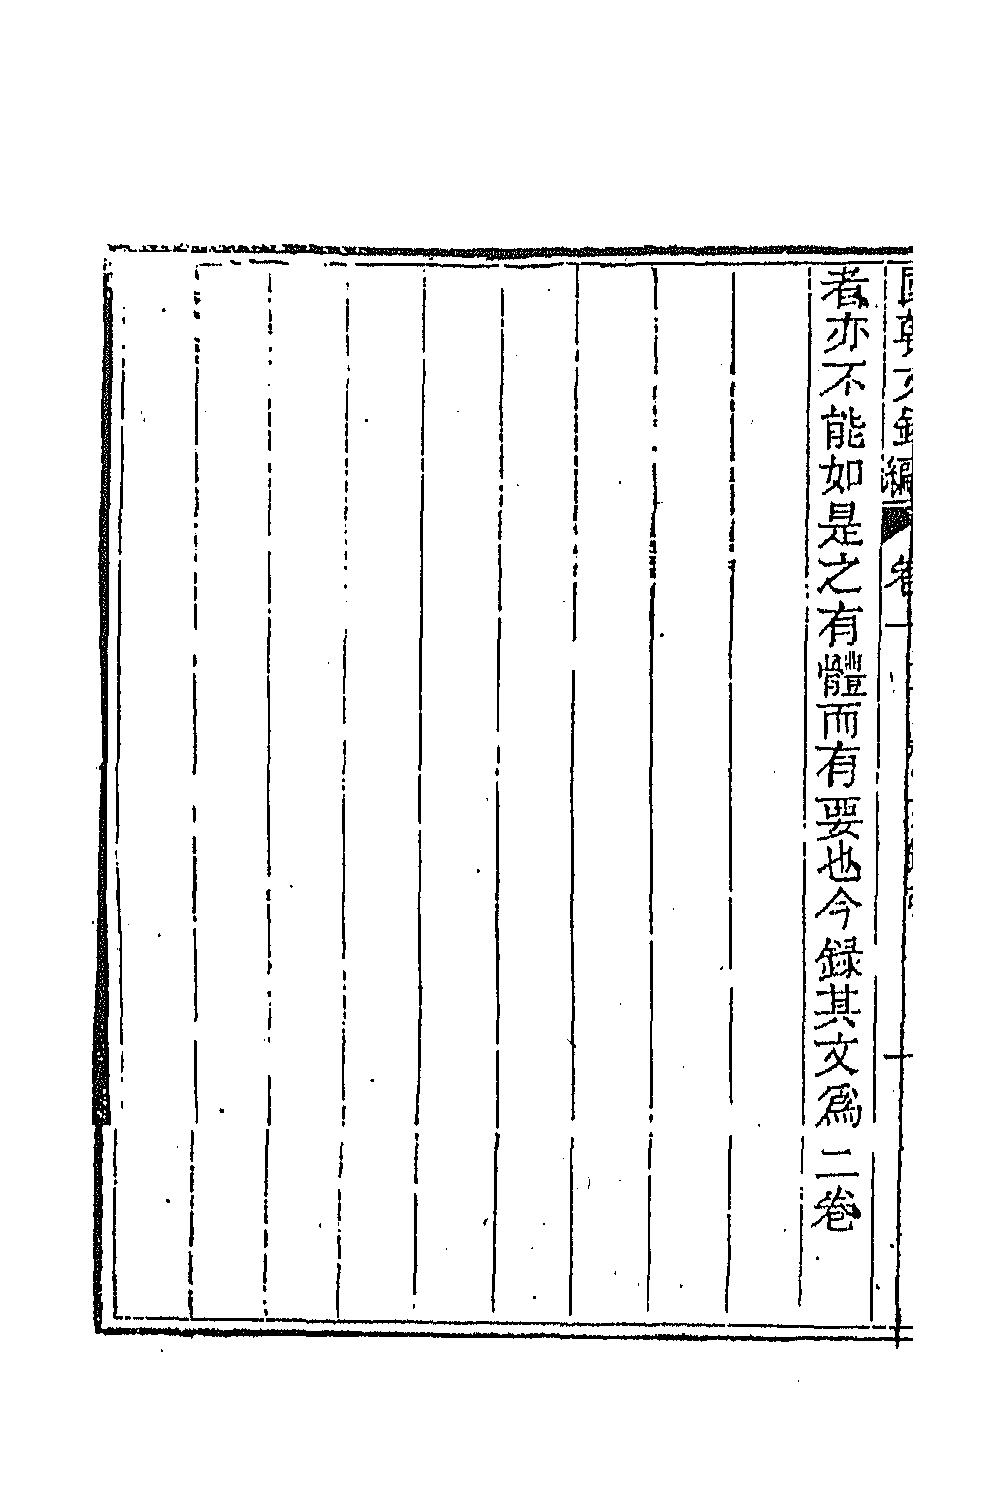 國朝文錄編 卷一
者亦不能如是之有體而有要也今録其文爲二卷